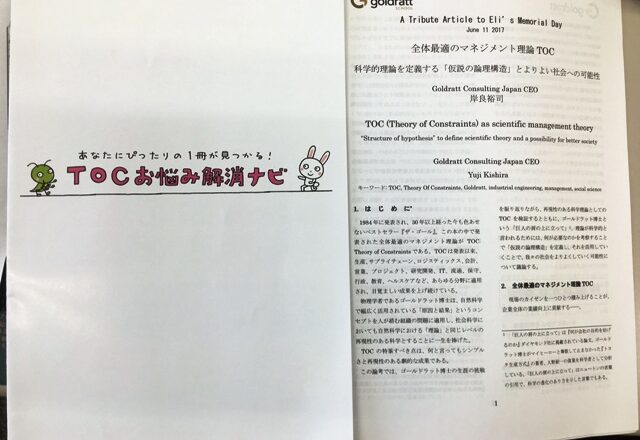 あなたにぴったりの1冊が見つかる!
TOCお悩み解消ナビ
goldratt
SCHOOL
A Tribute Article to Eli's Memorial Day
June 11 2017
全体最適のマネジメント理論 TOC
科学的理論を定義する「仮説の論理構造」とよりよい社会への可能性
Goldratt Consulting Japan CEO
岸良裕司
TOC (Theory of Constraints) as scientific management theory
"Structure of hypothesis" to define scientific theory and a possibility for better society
Goldratt Consulting Japan CEO
Yuji Kishira
キーワード: TOC, Theory Of Constraints, Goldratt, industrial engineering, management, social science
1. はじめに
1984年に発表され、30年以上経った今も色あせ
ないベストセラー『ザ・ゴール』。この本の中で発
表された全体最適のマネジメント理論が TOC
Theory of Constraints である。TOC は発表以来、
生産、サプライチェーン、ロジスティックス、会計、
営業、プロジェクト、研究開発、IT、流通、保守、
行政、教育、ヘルスケアなど、あらゆる分野に適用
され、目覚ましい成果を上げ続けている。
物理学者であるゴールドラット博士は、自然科学
で幅広く活用されている「原因と結果」というコン
セプトを人が絡む組織の問題に適用し、社会科学に
おいても自然科学における「理論」と同じレベルの
再現性のある科学とすることに一生を捧げた。
TOC の特筆すべき点は、何と言ってもシンプル
さと再現性のある劇的な成果である。
この論考では、ゴールドラット博士の生涯の挑戦
を振り返りながら、再現性のある科学理論としての
TOC を検証するとともに、ゴールドラット博士と
いう「巨人の肩の上に立って」1、理論が科学的と
言われるためには、何が必要なのかを考察すること
で「仮説の論理構造」を定義し、それを活用してい
くことで、我々の社会をよりよくしていく可能性に
ついて議論する。
2. 全体最適のマネジメント理論 TOC
現場のカイゼンを一つひとつ積み上げることが、
企業全体の業績向上に貢献する――。
1 「巨人の肩の上に立って」は『何が会社の目的を妨げ
るのか』ダイヤモンド社に掲載されている論文。ゴールド
ラット博士がマイヒーローと尊敬しておまなかった『トヨ
タ生産方式』の著者、大野耐一の偉業を科学者として分析
している。「巨人の肩の上に立って」はニュートンの言葉
の引用で、科学の進化のあり方を示した言葉でもある。
1